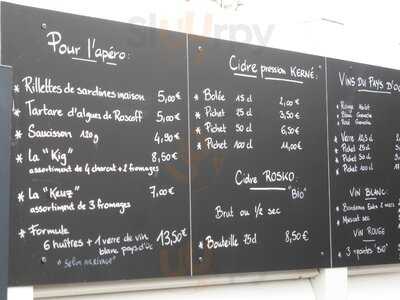 Pour l'apéro:
* Rillettes de sardines maison 5,00€
* Tartare d'algues de Roscoff 5,00€
* Saucisson 120g 4,50€
* La "Kig" 8,50€
assortiment de 4 charcut + 2 fromages
* La "Keuz" 7,00€
assortiment de 3 fromages
* Formule
6 huîtres + 1 verre de vin 13,50€
blanc pays d'oc
"selon arrivage"
Cidre pression KERNÉ:
* Bolée 15 cl 2,00€
* Pichet 25 cl 3,50€
* Pichet 50 cl 6,50€
* Pichet 100 cl 11,00€
Cidre ROSKO:
"Bio"
Brut ou 1/2 sec
* Bouteille 75cl 8,50€
VINS DU PAYS D'O
* Rouge
* Blanc
* Rosé
* Verre
* Pichet 25 cl
* Pichet 50 cl
* Pichet 100
VIN BLANC:
* Bordeaux Entre 2 mers
* Muscat sec
VIN ROUGE
* 3 pointes "BIO"
Sluurpy